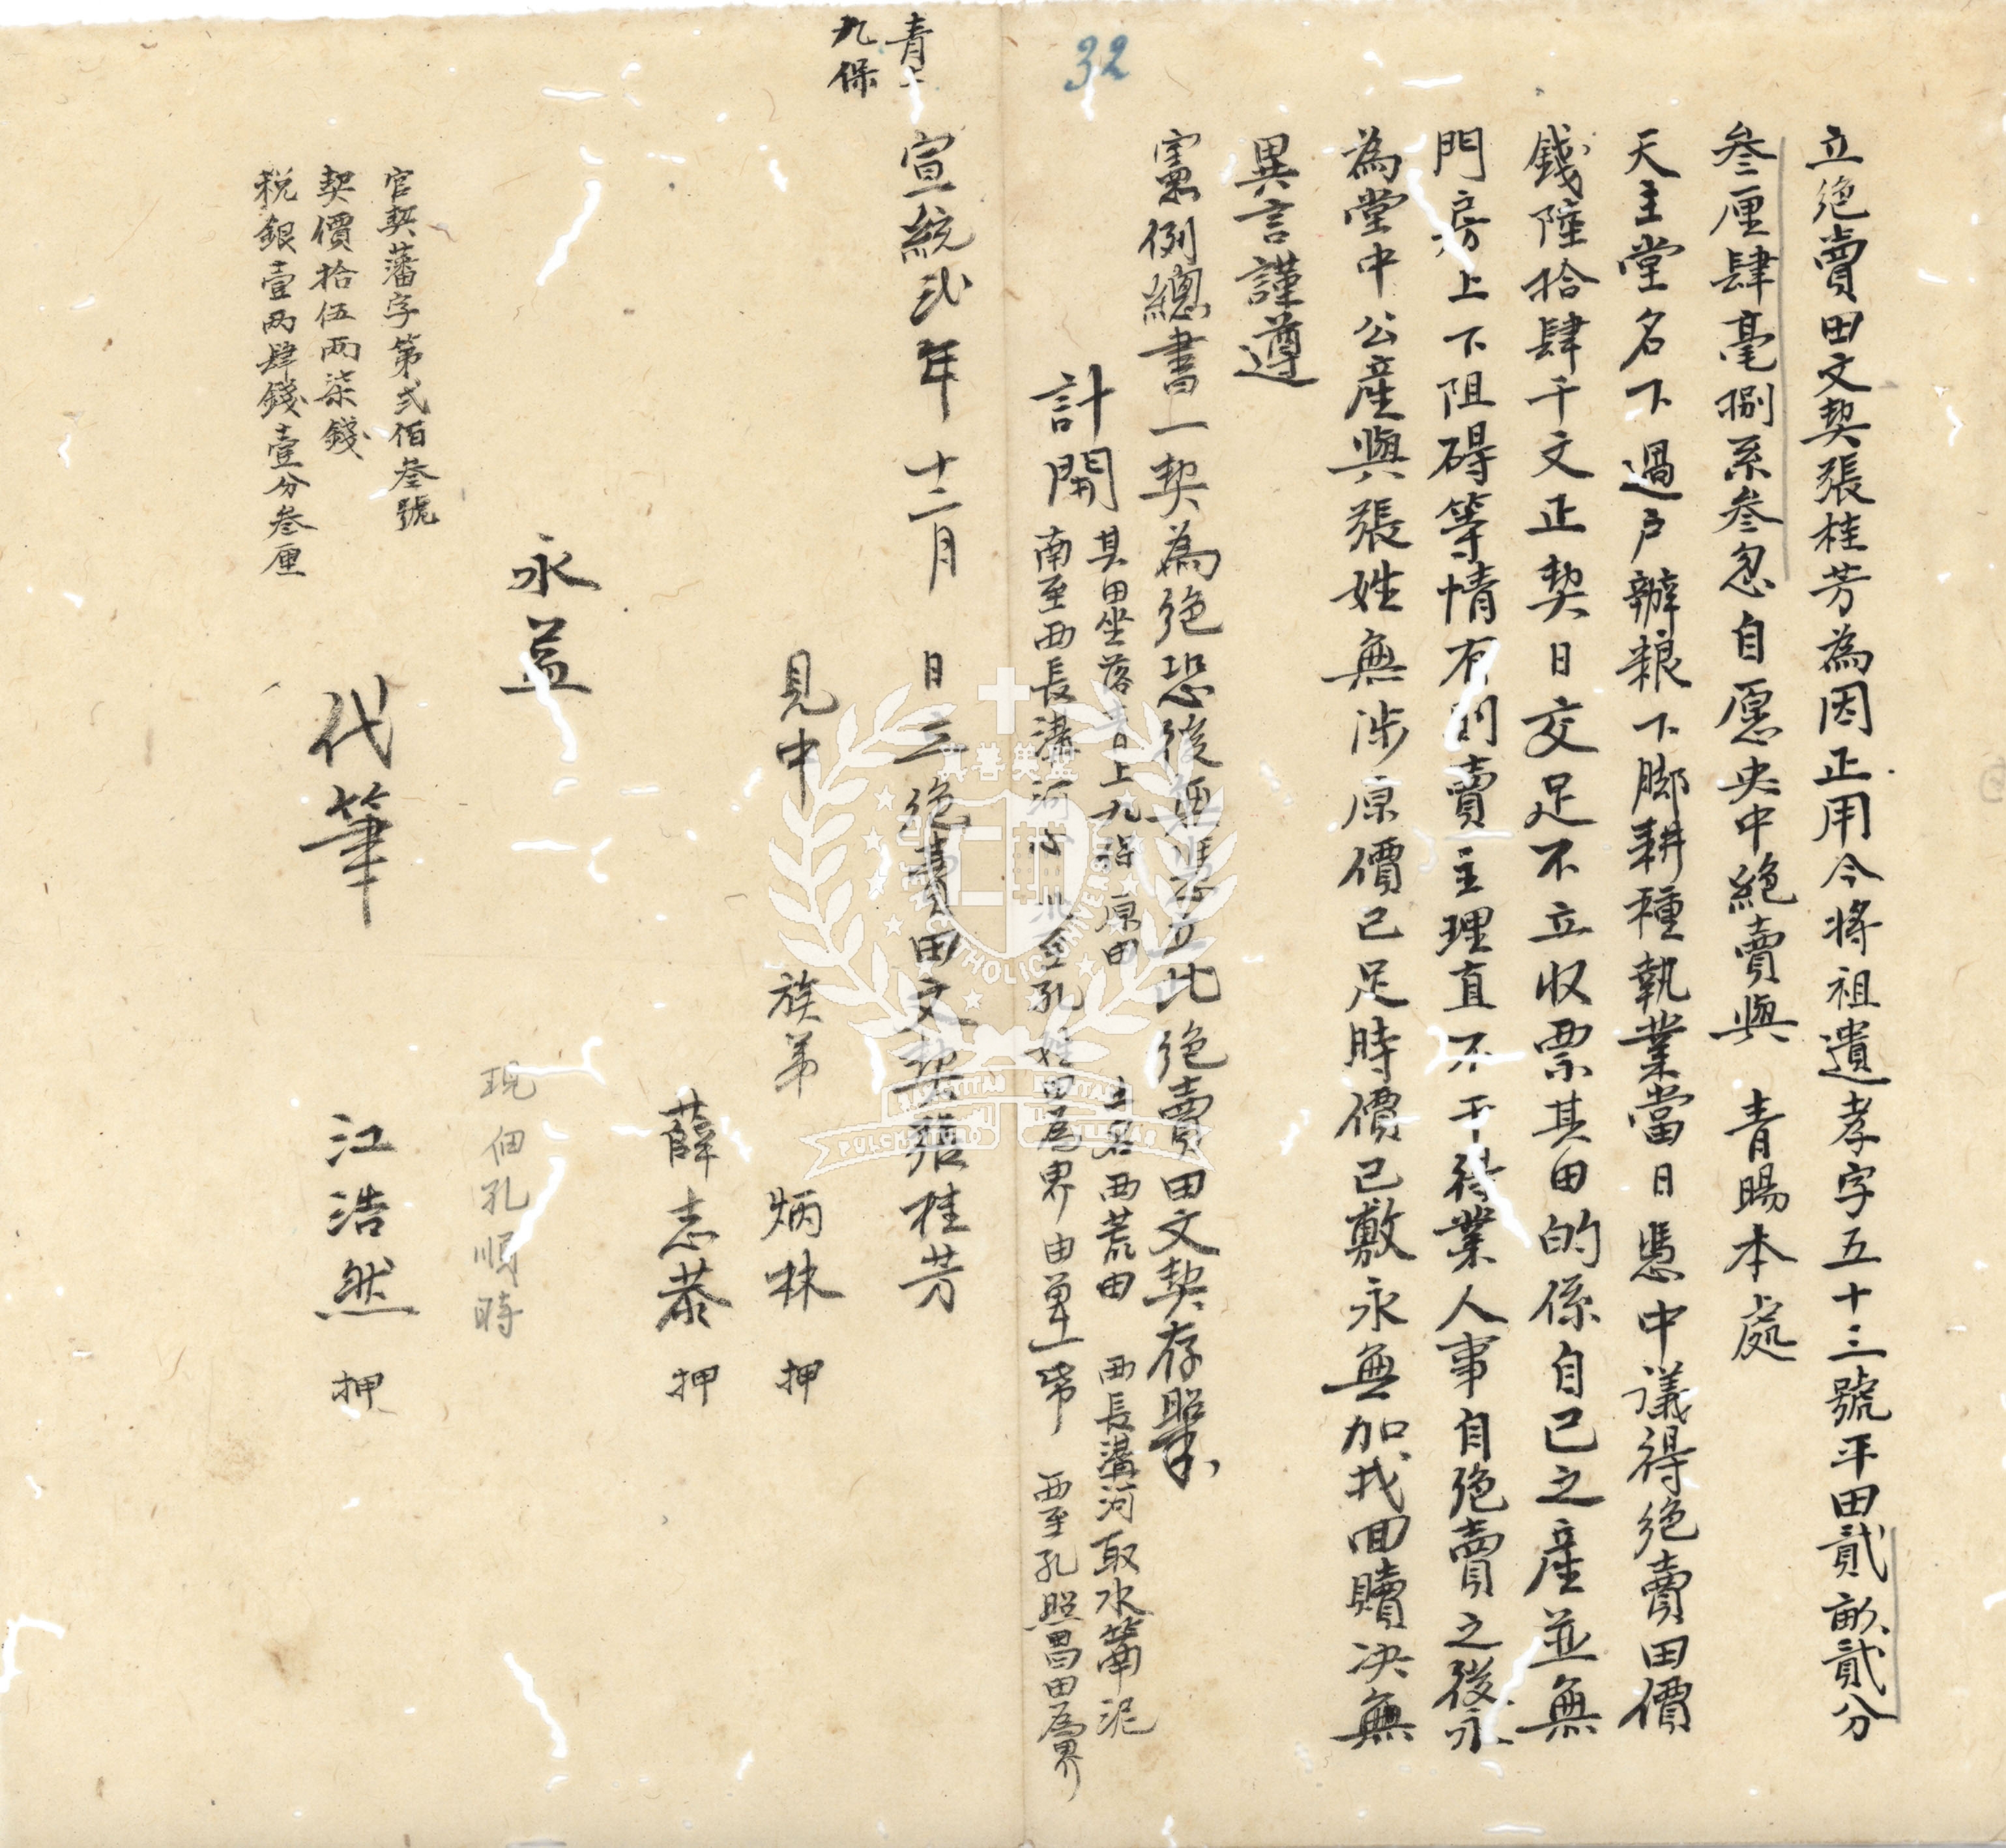 32
立絶賣田文契張桂芳為因正用今將祖遺孝字五十三號平田貳畝貳分
叄厘肆毫捌系叄忽自愿央中絶賣與 青暘本處
天主堂名下過戶辦粮下脚耕種執業當日憑中議得絶賣田價
錢陸拾肆千文正契日交足不立收票其田的係自己之產並無
門房上下阻碍等情有則賣主理直不干得業人事自絶賣之後永
為堂中公產與張姓無涉原價已足時價已敷永無加找回贖决無
異言謹遵
憲例總書一契為絶恐後無憑立此絶賣田文契存照
計開
其田坐落青上九保原田 土名西荒田 西長溝河取水罱泥
南至西長溝河心 北至孔姓田為界 由單一帋 西至孔照昌田為界
青上
九保
宣統貳年十二月 日立絶賣田文契張桂芳
見中 族弟 炳林 押
薛志恭 押
永益
現佃孔順時
代筆 江浩然 押
官契藩字第弍佰叄號
契價拾伍兩柒錢
税銀壹兩肆錢壹分叄厘
真善美聖
FU JEN CATHOLIC UNIVERSITY